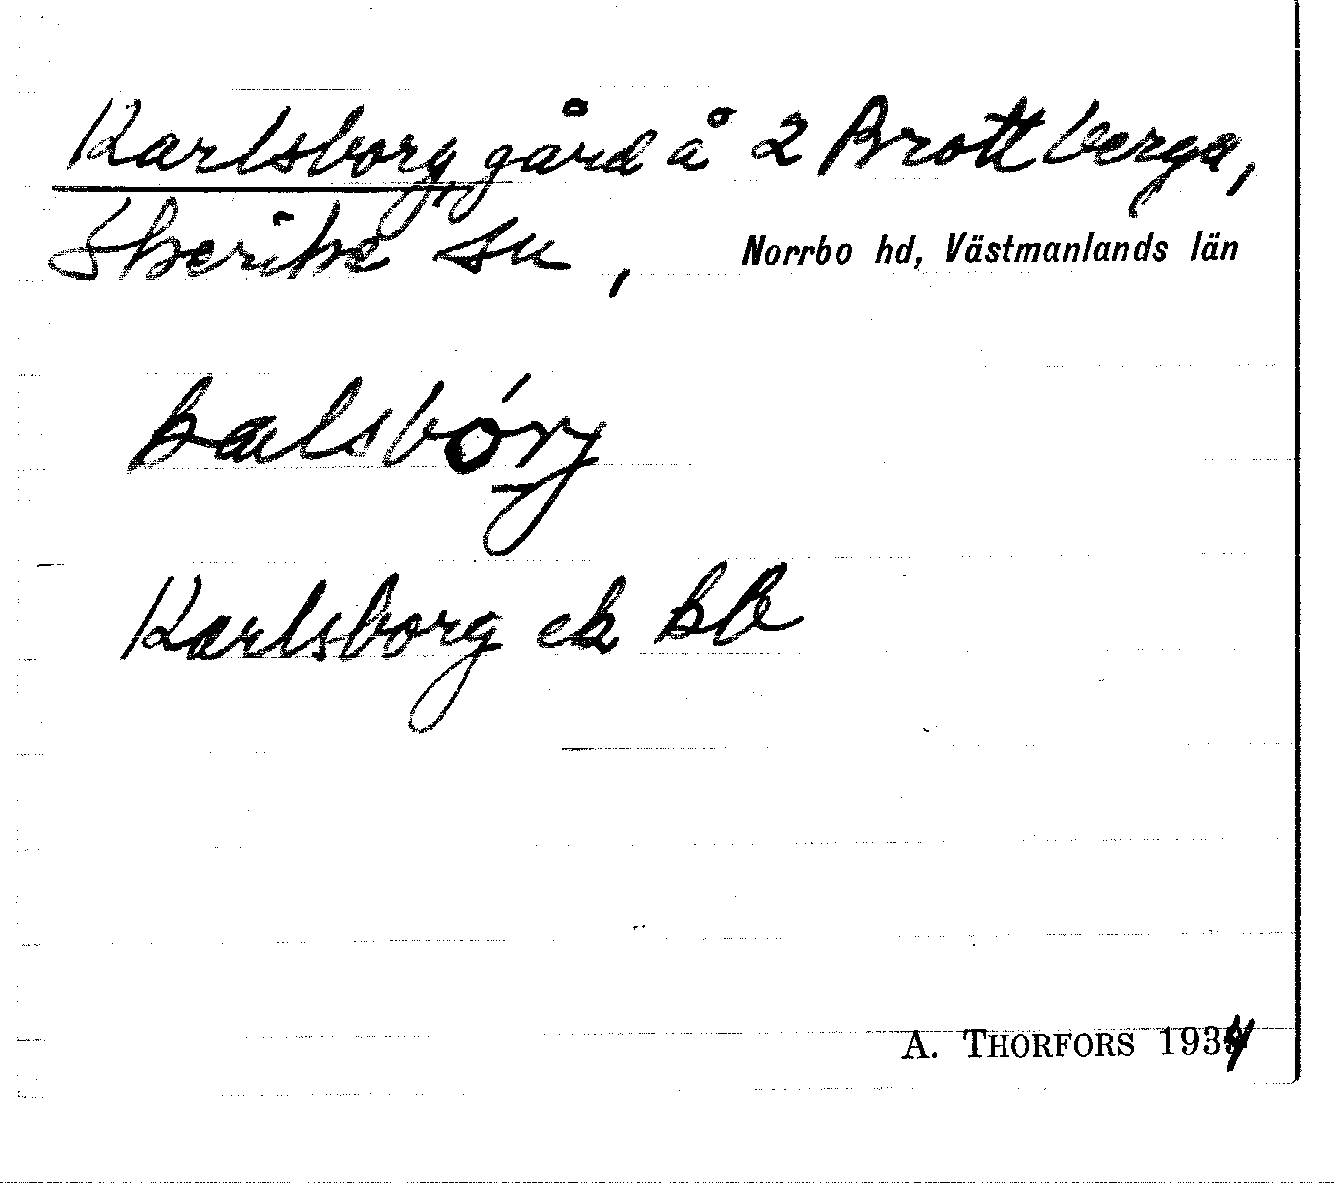 Karlsborg, gård å 2 Brottberga,
Skerike sn, Norrbo hd, Västmanlands län
kalsbórj
Karlsborg ek kb
A. THORFORS 1934